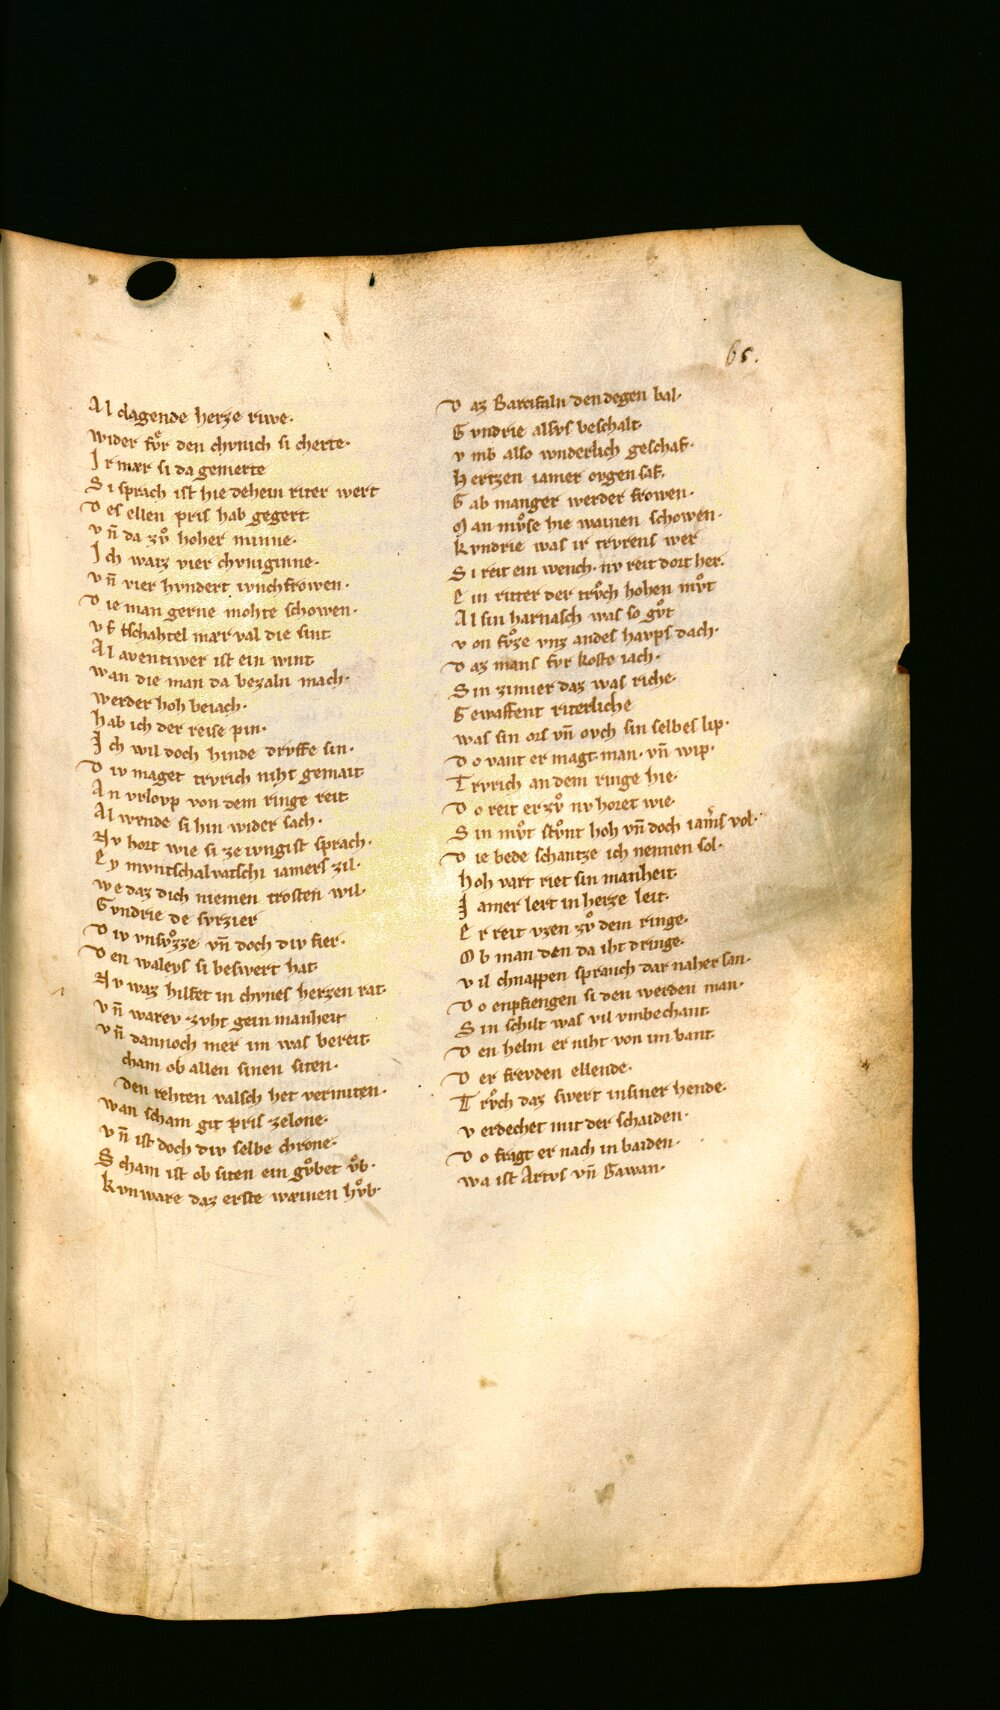 65.
Al clagende herze riwe·
wider fvͤr den chvnich si cherte·
Ir mær si da gemerte
Si sprach ist hie dehein riter wert
Des ellen pris hab gegert
vn̄ da zvͦ hoher minne·
Ich waiz vier chvniginne·
vn̄ vier hvndert ivnchfrowen·
Die man gerne mohte schowen·
vf tschahtel mærval die sint
Al aventiwer ist ein wint
wan die man da bezaln mach·
werder hoh beiach·
hab ich der reise pin·
Ich wil doch hinde drvffe sin·
Div maget trvrich niht gemait
An vrlovp von dem ringe reit
Al wende si hin wider sach·
Nv hort wie si ze ivngist sprach·
Ey mvntschalvatschi iamers zil·
we daz dich niemen trosten wil·
Gvndrie de svrzier
Div vnsvͦzze vn̄ doch div fier·
Den waleys si beswert hat
Nv waz hilfet in chvnes herzen rat·
vn̄ warev zvht gein manheit
vn̄ dannoch mer im was bereit
cham ob allen sinen siten·
den rehten valsch het vermiten·
wan scham git pris zelone·
vn̄ ist doch div selbe chrone·
Scham ist ob siten ein gvͦbet vͦb·
kvnware daz erste wæinen hvͦb·
Daz Barcifaln den degen bal·
Gvndrie alsvs beschalt
vmb also wnderlich geschaf·
hertzen iamer ovgen saf·
Gab manger werder frowen·
Man mvͦse hie wainen schowen·
kvndrie was ir trvrens wer
Si reit ein wench· nv reit dort her·
Ein ritter der trvͦch hohen mvͦt
Al sin harnasch was so gvͦt
von fvͦze vnz andes havps dach·
Daz mans fvr koste iach·
Sin zimier daz was riche·
Gewaffent riterliche
was sin ors vn̄ ovch sin selbes lip·
Do vant er magt· man· vn̄ wip·
Trvrich an dem ringe hie·
Do reit er zvͦ nv horet wie·
Sin mvͦt stvͦnt hoh vn̄ doch iamͤs vol·
Die bede schantze ich nennen sol·
hoh vart riet sin manheit
Iamer lert in herze leit·
Er reit vzen zvͦ dem ringe·
Ob man den da iht dringe·
vil chnappen sprauch dar naher san·
Do enpfiengen si den werden man·
Sin schilt was vil vmbechant
Den helm er niht von im bant
Der frevden ellende·
Trvͦch daz swert in siner hende·
verdechet mit der schaiden·
Do fragt er nach in baiden·
wa ist Artvs vn̄ Gawan·